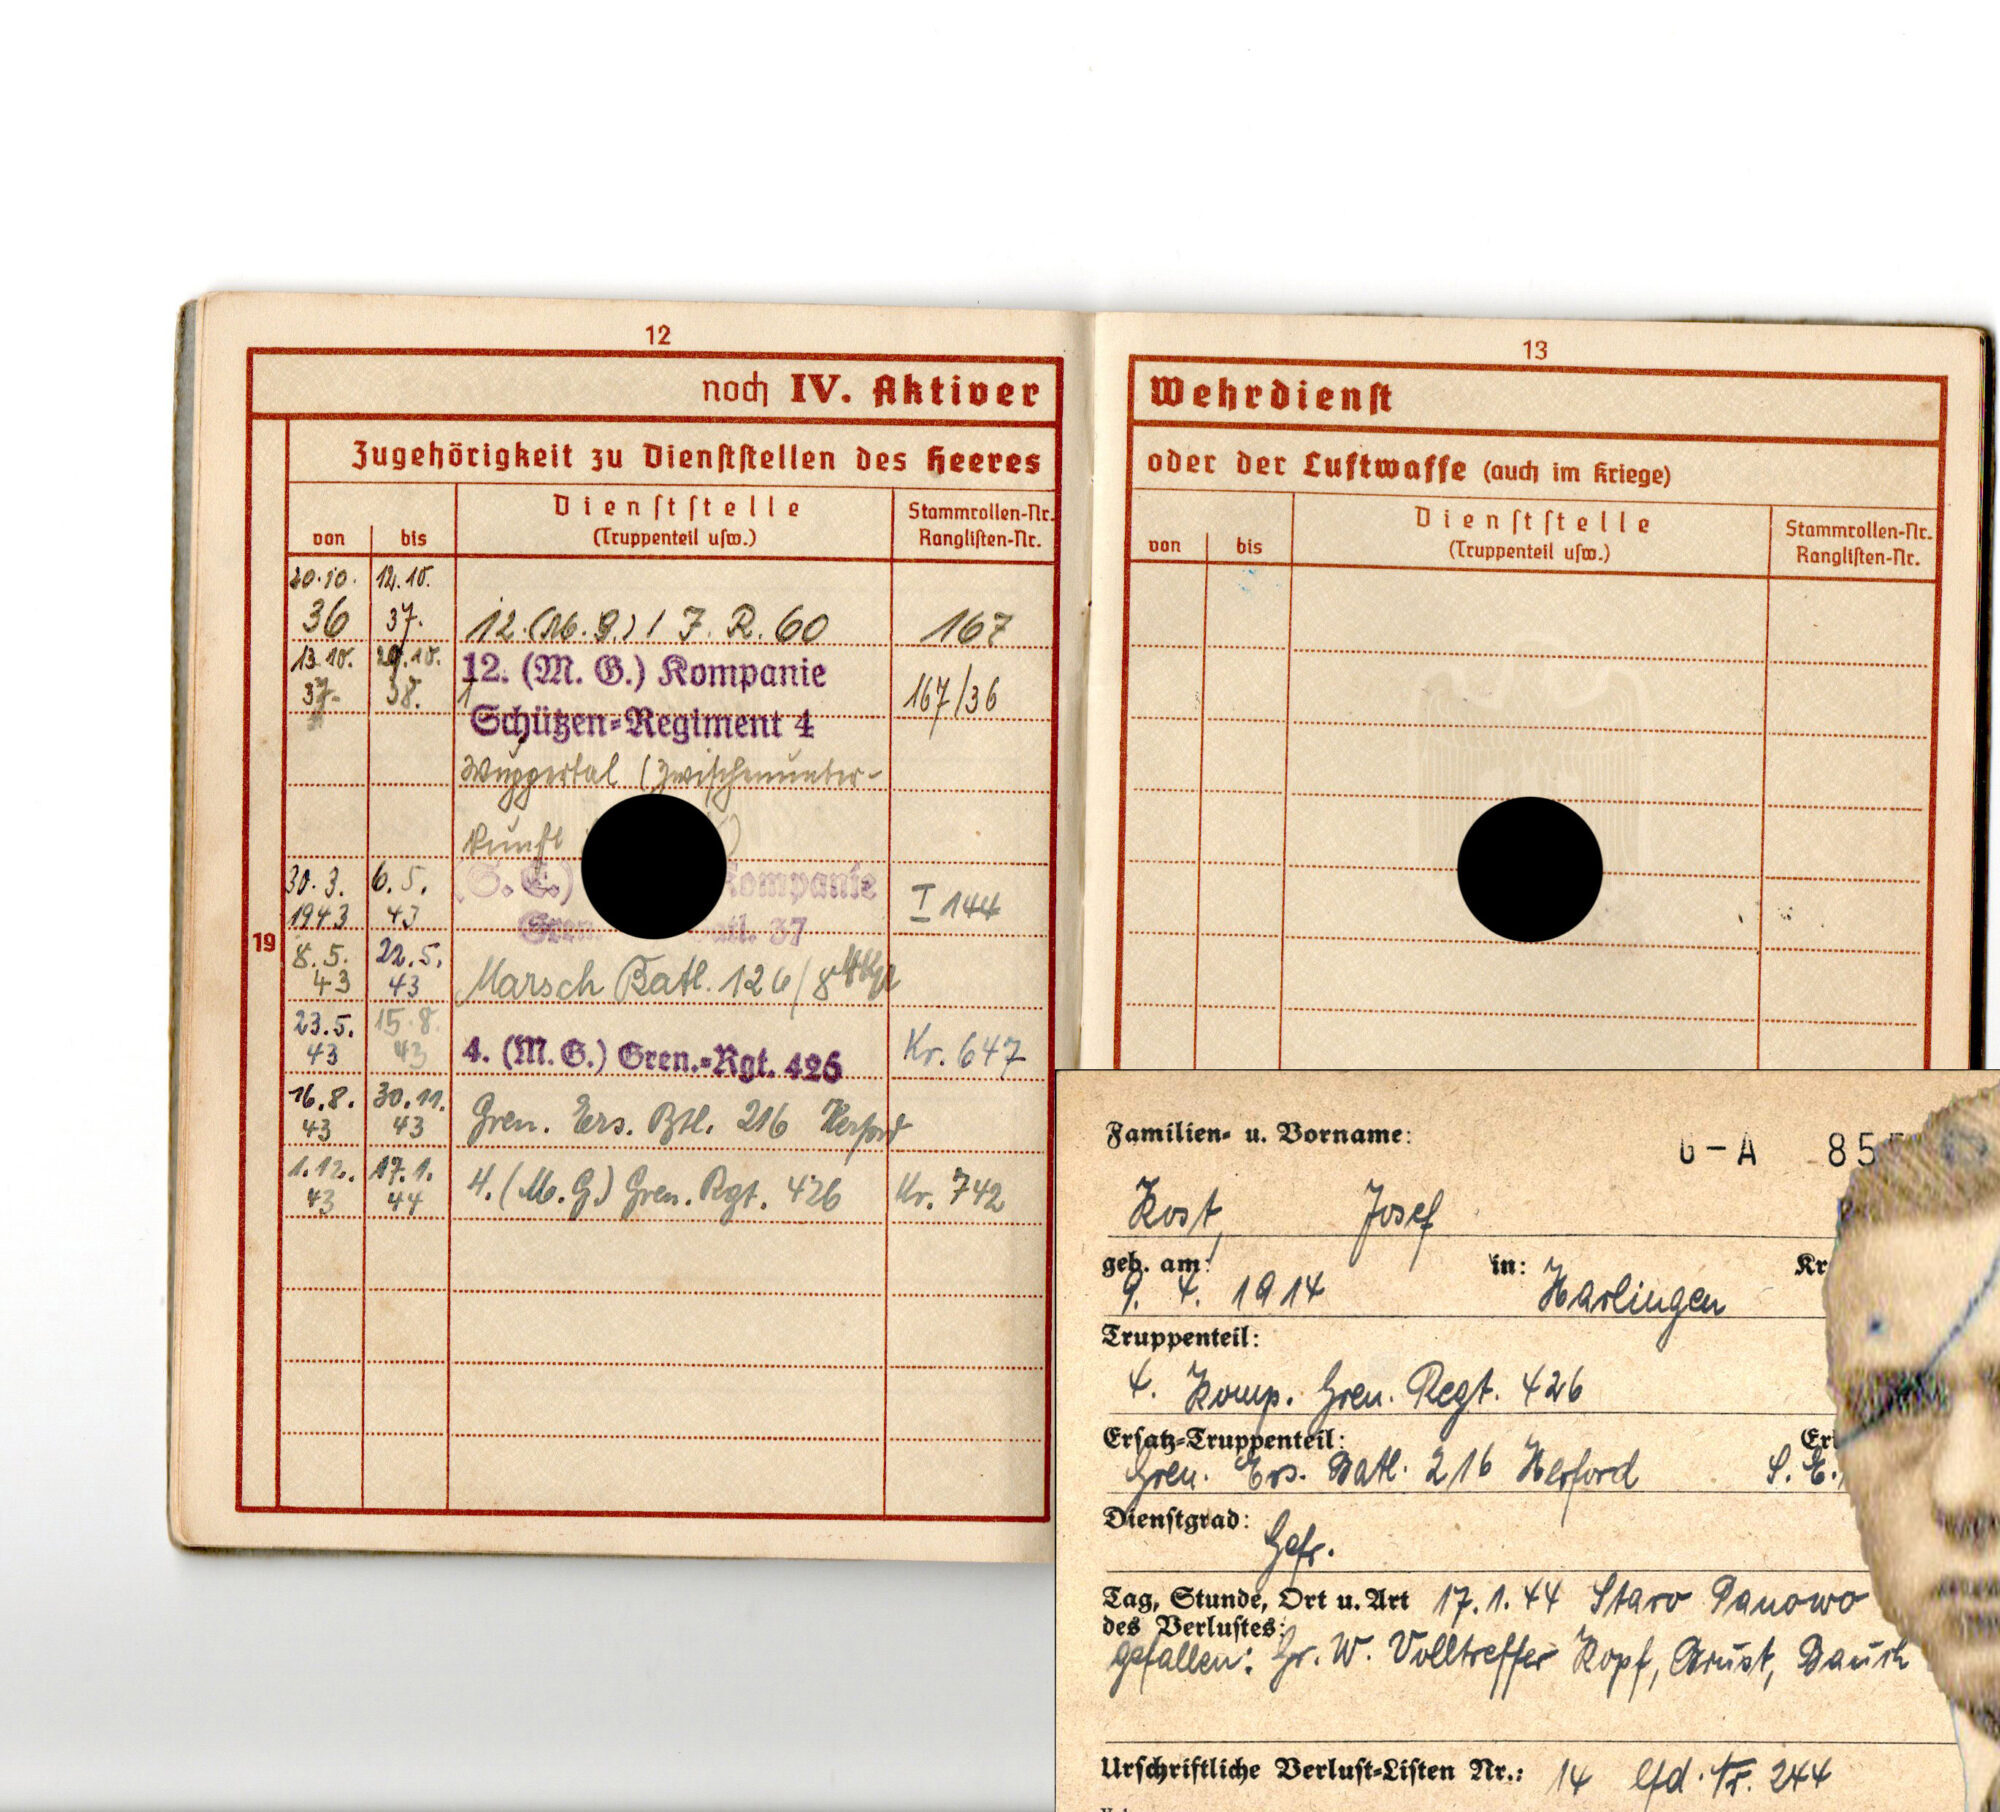 12
noch IV. Aktiver
Zugehörigkeit zu Dienststellen des Heeres
von
bis
Dienststelle
(Truppenteil usw.)
Stammrollen-Nr.
Ranglisten-Nr.
20.10. 36
12.10. 37.
12.(M.G.) / J. R. 60
167
13.10. 37.
38.
12. (M. G.) Kompanie
167/36
Schützen-Regiment 4
Wuppertal (Zwischenunter-
kunft
30.3. 1943
6.5. 43
(S. E.) Kompanie
Gren. Batl. 37
I 144
19
8.5. 43
22.5. 43
Marsch Batl. 126/8
23.5. 43
15.8. 43
4. (M. G.) Gren.-Rgt. 426
Kr. 647
16.8. 43
30.11. 43
Gren. Ers. Btl. 216 Herford
1.12. 43
17.1. 44
4. (M.G.) Gren. Rgt. 426
Kr. 742
13
Wehrdienst
oder der Luftwaffe (auch im Kriege)
von
bis
Dienststelle
(Truppenteil usw.)
Stammrollen-Nr.
Ranglisten-Nr.
Familien- u. Vorname:
G-A 85
Kost, Josef
geb. am: in: Kr
9. 4. 1914 Harlingen
Truppenteil:
4. Komp. Gren. Regt. 426
Ersatz-Truppenteil:
Gren. Ers. Batl. 216 Herford S. E.
Dienstgrad:
Gefr.
Tag, Stunde, Ort u. Art 17.1.44 Staro Panowo
des Verlustes:
gefallen: Gr. W. Volltreffer Kopf, Brust, Bauch
Urschriftliche Verlust-Listen Nr.: 14 lfd. Nr. 244